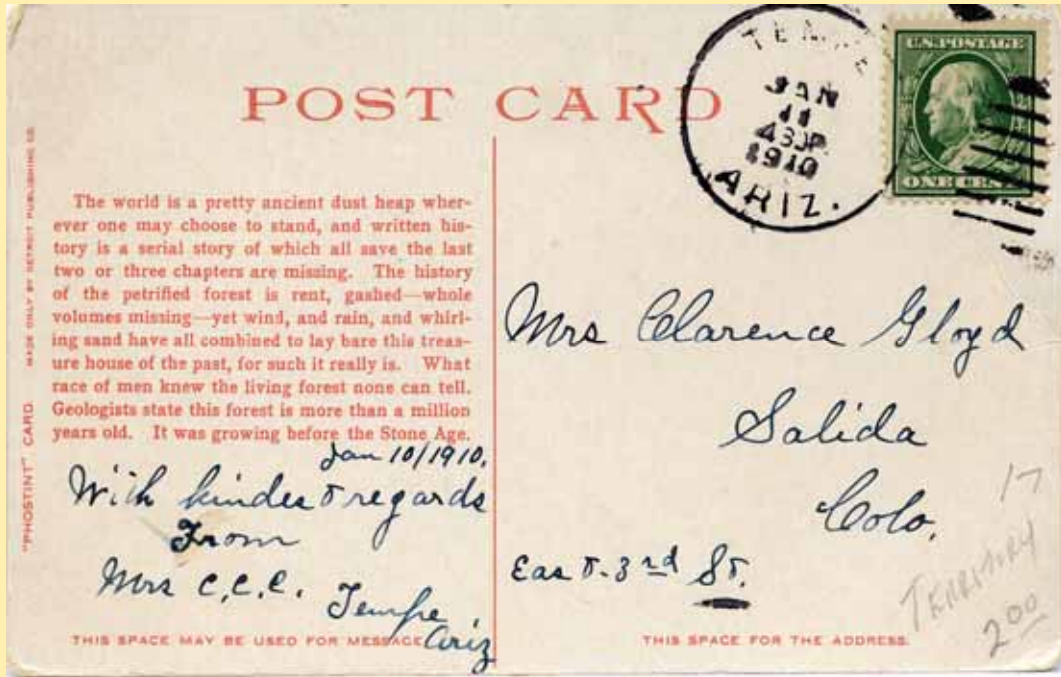 POST CARD
TEMPE
JAN
11
430P
1910
ARIZ.
U.S. POSTAGE
ONE CENT
"PHOSTINT" CARD. MADE ONLY BY DETROIT PUBLISHING CO.
The world is a pretty ancient dust heap wher-
ever one may choose to stand, and written his-
tory is a serial story of which all save the last
two or three chapters are missing. The history
of the petrified forest is rent, gashed—whole
volumes missing—yet wind, and rain, and whirl-
ing sand have all combined to lay bare this treas-
ure house of the past, for such it really is. What
race of men knew the living forest none can tell.
Geologists state this forest is more than a million
years old. It was growing before the Stone Age.
Jan 10/1910.
With kindest regards
From
Mrs C.C.C.
Tempe
Ariz
THIS SPACE MAY BE USED FOR MESSAGE
Mrs Clarence Gloyd
Salida
Colo.
East-3rd St.
17
TERRITORY
2.00
THIS SPACE FOR THE ADDRESS.